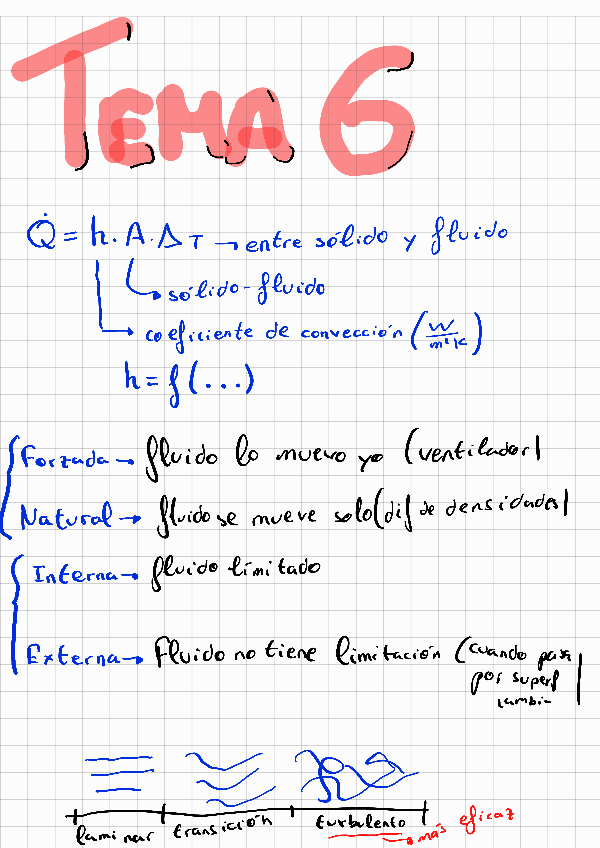 TEMA 6
Q̇ = h · A · Δ T → entre sólido y fluido
sólido-fluido
coeficiente de convección (W/m²K)
h = f (...)
Forzada → fluido lo muevo yo (ventilador)
Natural → fluido se mueve solo (dif de densidades)
Interna → fluido limitado
Externa → fluido no tiene limitación (cuando pasa
por superf
cambia
laminar transición turbulento → más eficaz